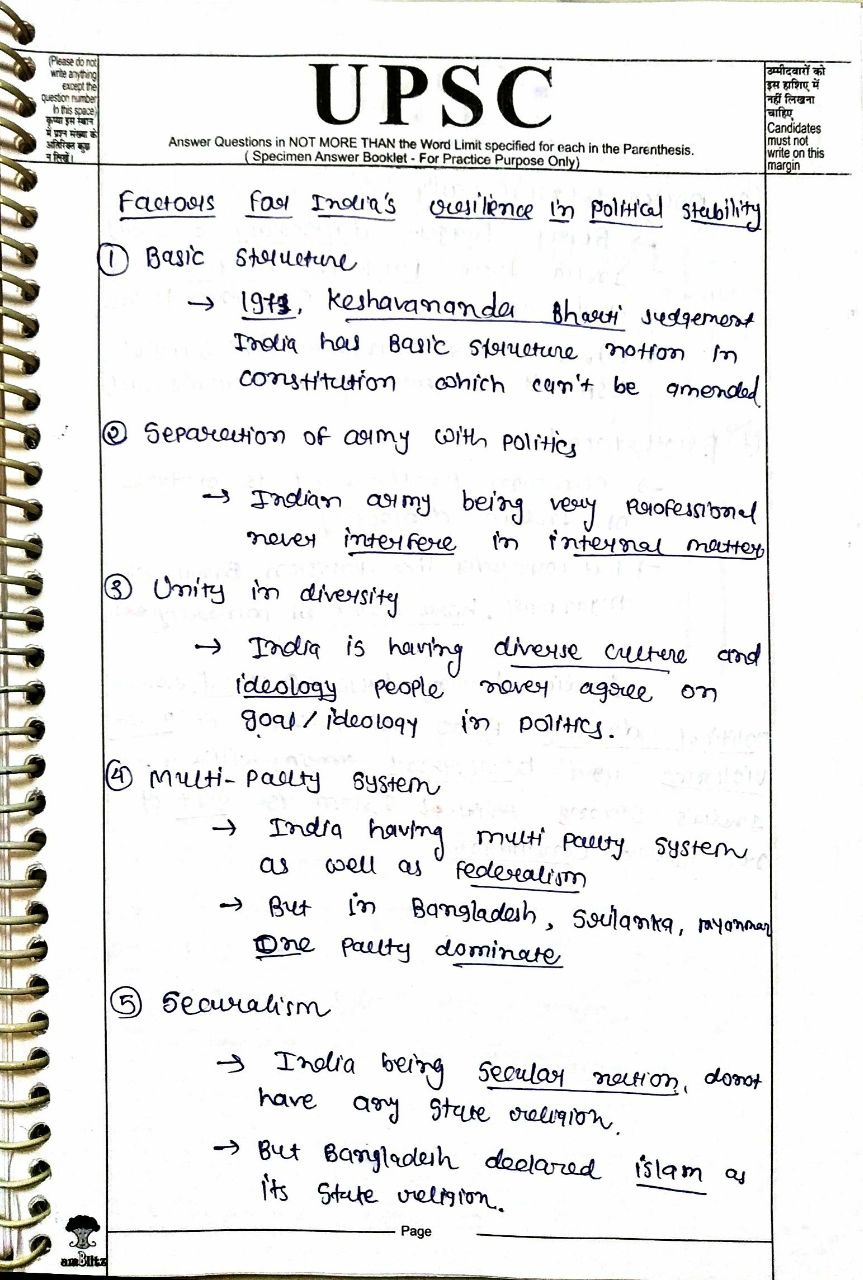 (Please do not
write anything
except the
question number
in this space)
कृपया इस स्थान
में प्रश्न संख्या के
अतिरिक्त कुछ
न लिखें।
UPSC
Answer Questions in NOT MORE THAN the Word Limit specified for each in the Parenthesis.
( Specimen Answer Booklet - For Practice Purpose Only)
उम्मीदवारों को
इस हाशिए में
नहीं लिखना
चाहिए
Candidates
must not
write on this
margin
Factors for India's resilience in political stability
① Basic structure
→ 1973, Keshavananda Bharti judgement
India has Basic structure notion in
constitution which can't be amended
② Separation of army with politics
→ Indian army being very professional
never interfere in internal matter
③ Unity in diversity
→ India is having diverse culture and
ideology people never agree on
goal/ideology in politics.
④ Multi-party system
→ India having multi party system
as well as federalism
→ But in Bangladesh, Srilanka, myanmar
One party dominate
⑤ Secularism
→ India being secular nation, donot
have any state religion.
→ But Bangladesh declared islam as
its state religion.
Page
amBlitz